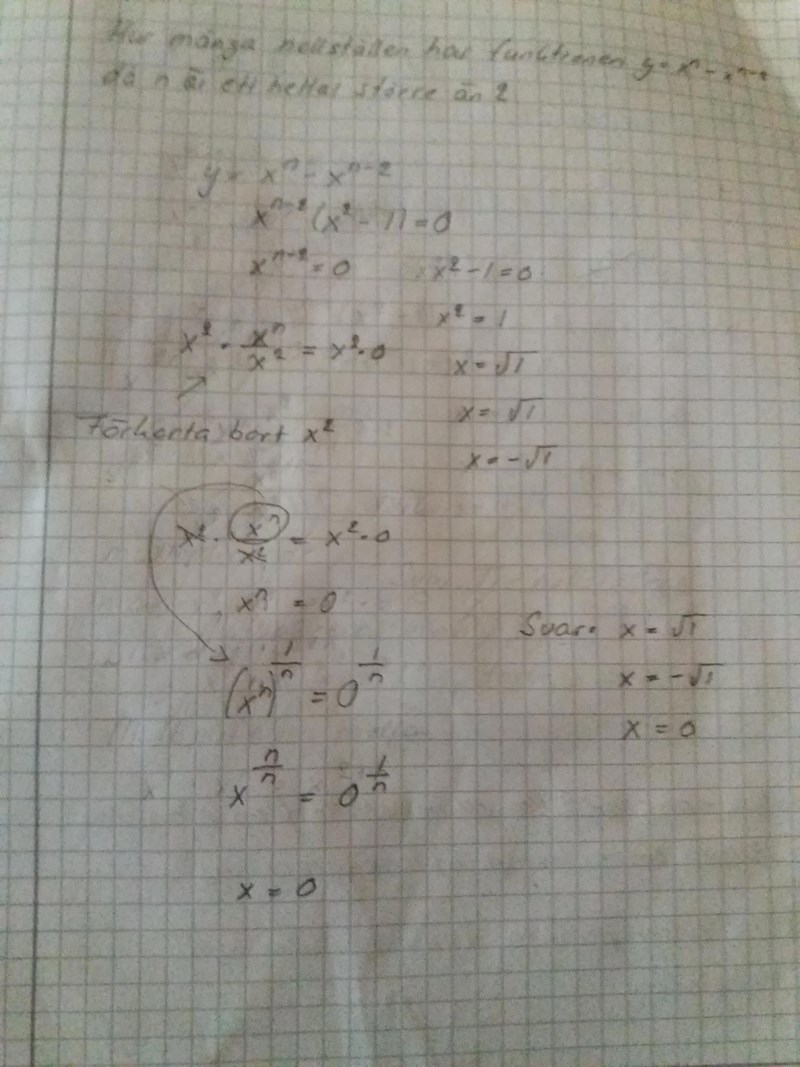 Hur många nollställen har funktionen y = xⁿ - xⁿ⁻²
då n är ett heltal större än 2
y = xⁿ - xⁿ⁻²
xⁿ⁻² (x² - 1) = 0
xⁿ⁻² = 0
x² · xⁿ/x² = x² · 0
Förkorta bort x²
x² · xⁿ/x² = x² · 0
xⁿ = 0
(xⁿ)^(1/n) = 0^(1/n)
x^(n/n) = 0^(1/n)
x = 0
x² - 1 = 0
x² = 1
x = √1
x = √1
x = -√1
Svar: x = √1
x = -√1
x = 0